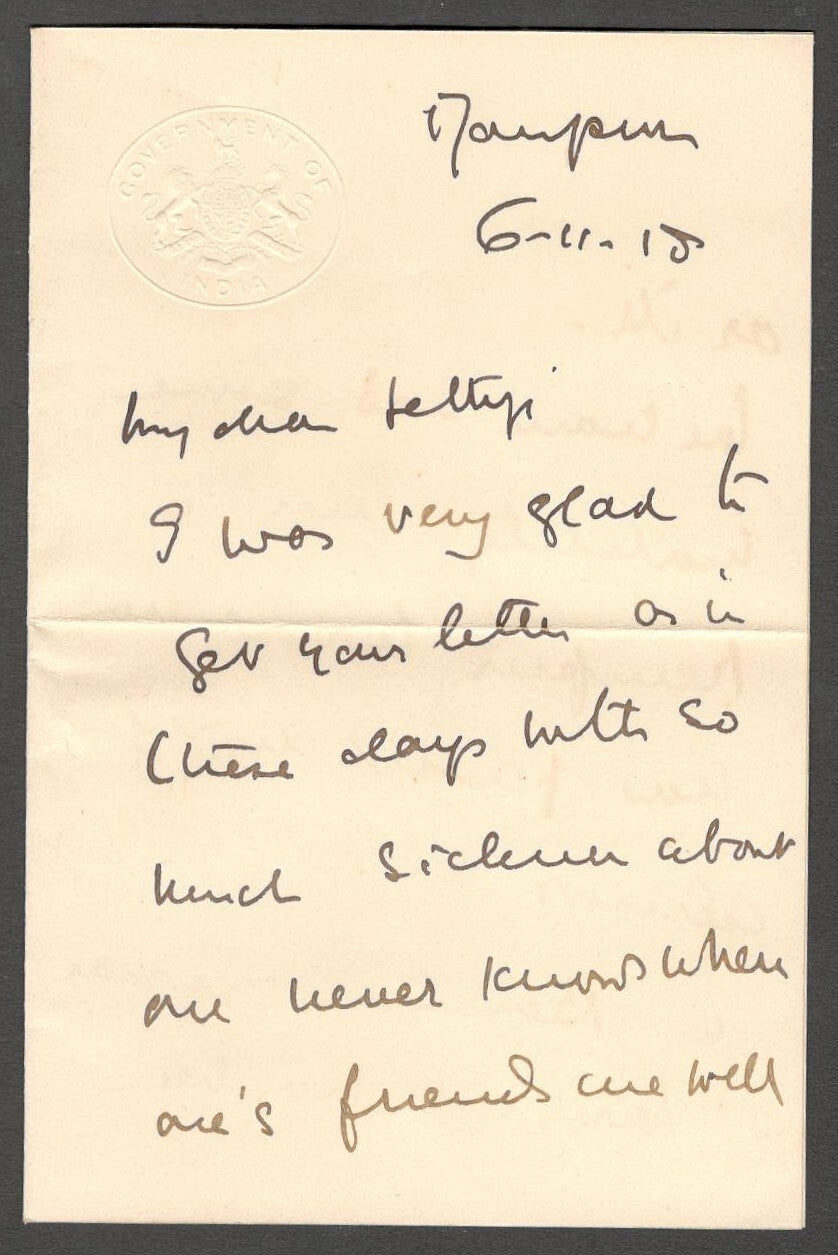 GOVERNMENT OF INDIA
6-11-18
My dear Settlji
I was very glad to
get your letter as in
these days with so
much sickness about
one never knows when
one's friends are well